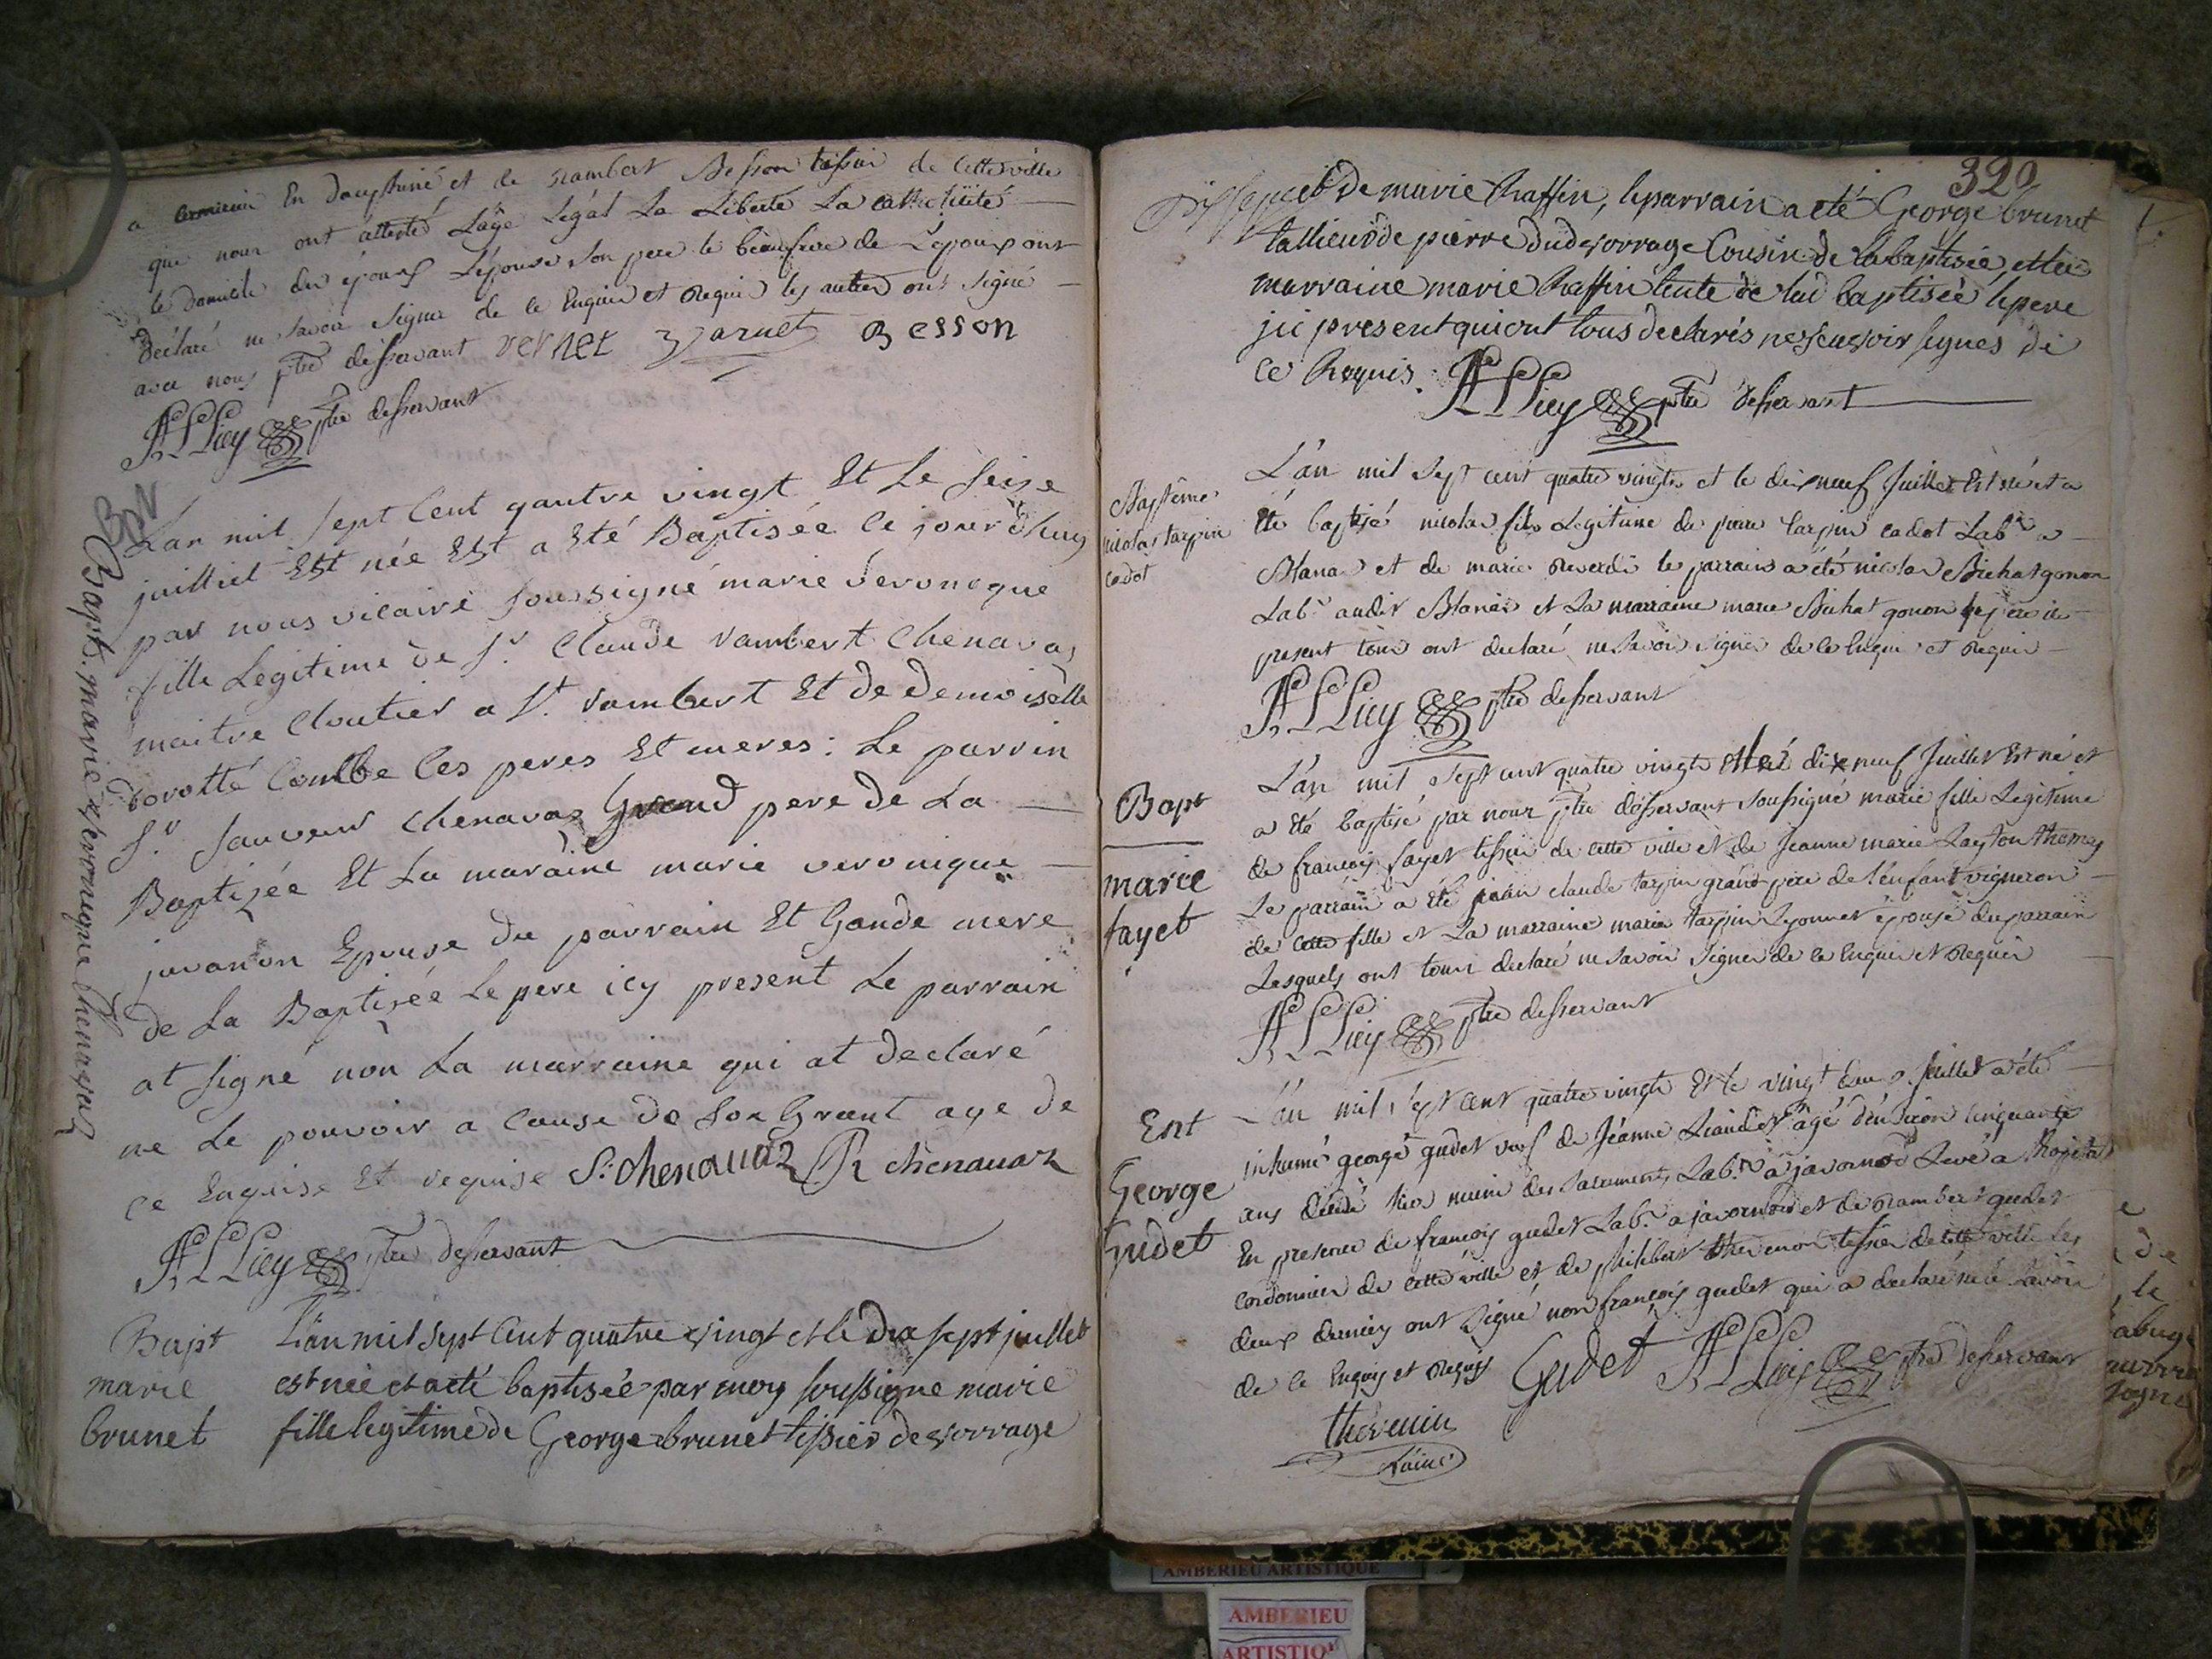 a En dauphiné et de rambert Besson tissier de cette ville
qui nous ont attesté L'age Legal La Liberté La catholicité
le domicile des epoux L'epouse son pere le beaufrere de L'epoux ont
déclaré ne savoir signer de ce Enquis et Requis les autres ont signé
avec nous ptre desservant vernet Besson
ptre desservant
Bpt
Bapt. marie veronique Chenavaz
L'an mil sept Cent qautre vingt Et Le seize
juilliet Est née Est a Eté Baptisée Ce jour d'huy
par nous vicaire soussigné marie veronoque
fille Legitime de Sr. Claude rambert Chenavas
maitre Cloutier a St. rambert Et de demoiselle
dorotté Combe Ces peres Et meres: Le parrin
Sr. Sauveur Chenavas Grand pere de La
Baptizée Et La maraine marie veronique
juvanon Epouse du parrain Et Gande mere
de La Baptizée Le pere icy present Le parrain
at signé non La marraine qui at declaré
ne Le pouvoir a Cause de son Grant age de
ce Enquise Et requise S: chenauaz R chenauaz
ptre desservant
Bapt
marie
brunet
L'an mil sept Cent quatre vingt et le dix sept juillet
est née et a eté baptisée par moy soussigne marie
fille legitime de George brunet tissier de vorrage
320
et de marie Chaffin, le parrain a eté George brunet
tallieur de pierre du de vorrage Cousin de la baptisée, et la
marraine marie Chaffin tente de lad baptisée le pere
jci present qui ont tous declarés ne scavoir signes de
ce Requis. ptre desservant
Baptême
nicolas tarpin
cadot
L'an mil sept cent quatre vingts et le dixneuf Juillet Est né et a
Eté baptisé nicolas fils Legitime de pierre tarpin cadot Labr a
Blanas et de marie Reverdi le parrain a été nicolas Bichat gonon
Labr audit Blanas et La marraine marie Bichat gonon le pere ici
present tous ont declaré ne savoir signer de ce Enquis et Requis
ptre desservant
Bapt
marie
fayet
L'an mil sept cent quatre vingts et le dixneuf Juillet Est né et
a Eté baptisé par nous ptre desservant soussigné marie fille Legitime
de françois fayet tissier de cette ville et de Jeanne marie
Le parrain a Eté jean claude tarpin grand pere de l'enfant vigneron
de cette ville et La marraine marie tarpin epouse du parrain
Lesquels ont tous declaré ne savoir signer de ce Enquis et Requis
ptre desservant
Ent
George
Gudet
L'an mil sept cent quatre vingts Et le vingt Juillet a été
inhumé george gudet veuf de Jeanne agé d'environ cinquante
ans décédé hier muni des sacrements Labr a javornod
En presence de françois gudet Labr a javornod et de Rambert gudet
cordonnier de cette ville et de philibert thevenin tissier de cette ville les
deux derniers ont signé non françois gudet qui a declaré ne le savoir
de ce Enquis et Requis Gudet ptre desservant
thevenin
e
de
le
AMBERIEU ARTISTIQUE
AMBERIEU